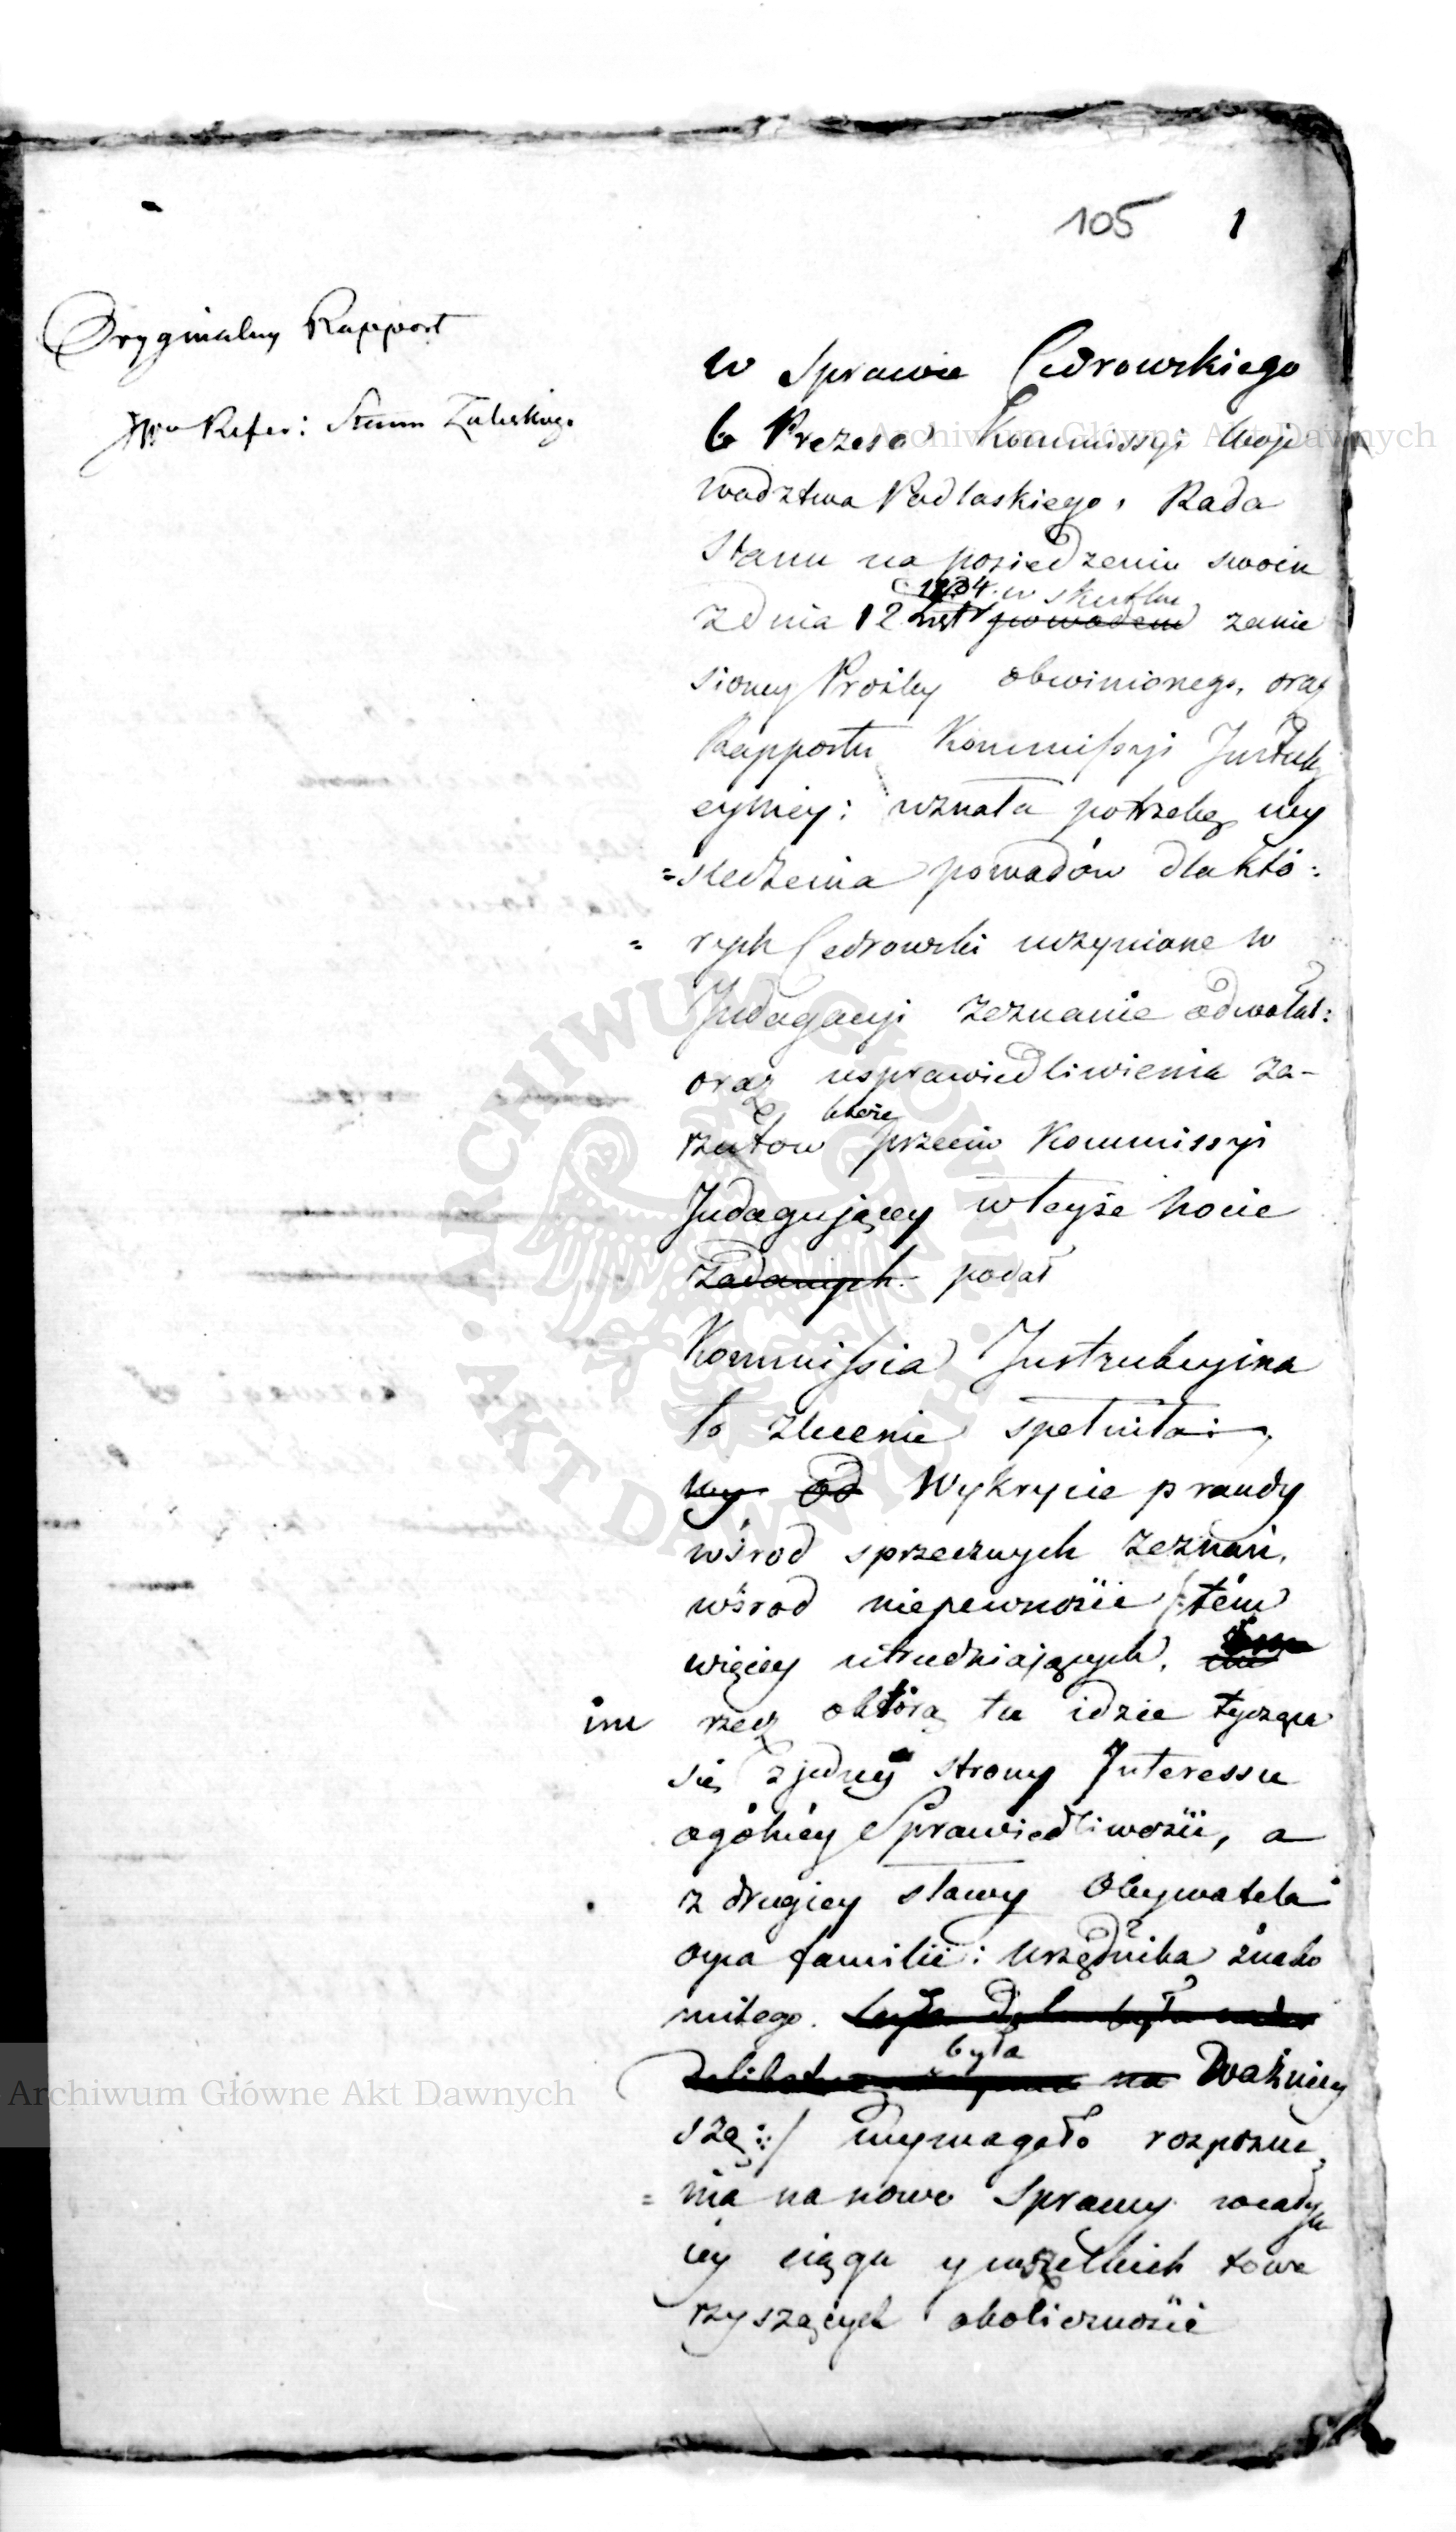 105 1
Oryginalny Rapport
JWo Refer: Stanu Zaleskiego
w Sprawie Cedrowskiego
b Prezesa Kommissyi Woje
wodztwa Podlaskiego, Rada
Stanu na posiedzeniu swoim
w skutku
z dnia 12 powodem zanie
sioney Prośby obwinionego, oraz
Rapportu Kommissyi Instruk
cyiney: uznała potrzebę wy
=sledzenia powodów dla któ:
= rych Cedrowski uczynione w
Indagacyi zeznanie odwołał:
oraz usprawiedliwienia za-
które
rzutow przeciw Kommissyi
Indagującey w teyże nocie
zadanych podał
Kommissia Instrukcyina
to zlecenie spełniła
wy od Wykrycie prawdy
wśrod sprzecznych zeznań,
wśrod niepewności /: tém
więcey utrudniających,
im rzecz o którą tu idzie tycząca
się z jedney strony Interessu
ogólney Sprawiedliwości, a
z drugiey sławy Obywatela
oyca familii: urzędnika znako
mitego.
była
na ważniey
szą :/ wymagało rozpozna
= nia na nowo Sprawy w całym
iey ciągu y wszelkich towa
rzyszących okoliczności
Archiwum Główne Akt Dawnych
Archiwum Główne Akt Dawnych
ARCHIWUM GŁÓWNE AKT DAWNYCH